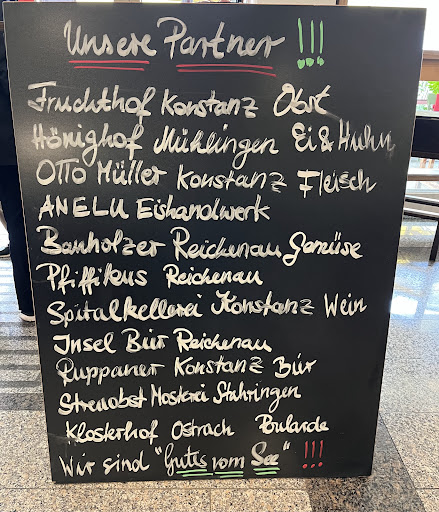 Unsere Partner !!!
Fruchthof Konstanz Obst
Hönighof Mühlingen Ei & Huhn
Otto Müller Konstanz Fleisch
ANELU Eishandwerk
Banholzer Reichenau Gemüse
Pfiffikus Reichenau
Spitalkellerei Konstanz Wein
Insel Bier Reichenau
Ruppaner Konstanz Bier
Streuobst Mosterei Stahringen
Klosterhof Ostrach
Wir sind "Gutes vom See" !!!